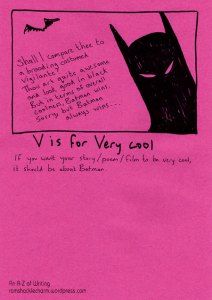 Shall I compare thee to
a brooding costumed
vigilante?
Thou art quite awesome
and look good in black
But in terms of overall
coolness Batman wins.
Sorry but Batman
always wins...
V is for Very cool
If you want your story/poem/film to be very cool,
it should be about Batman.
An A-Z of Writing
ramshacklecharm.wordpress.com